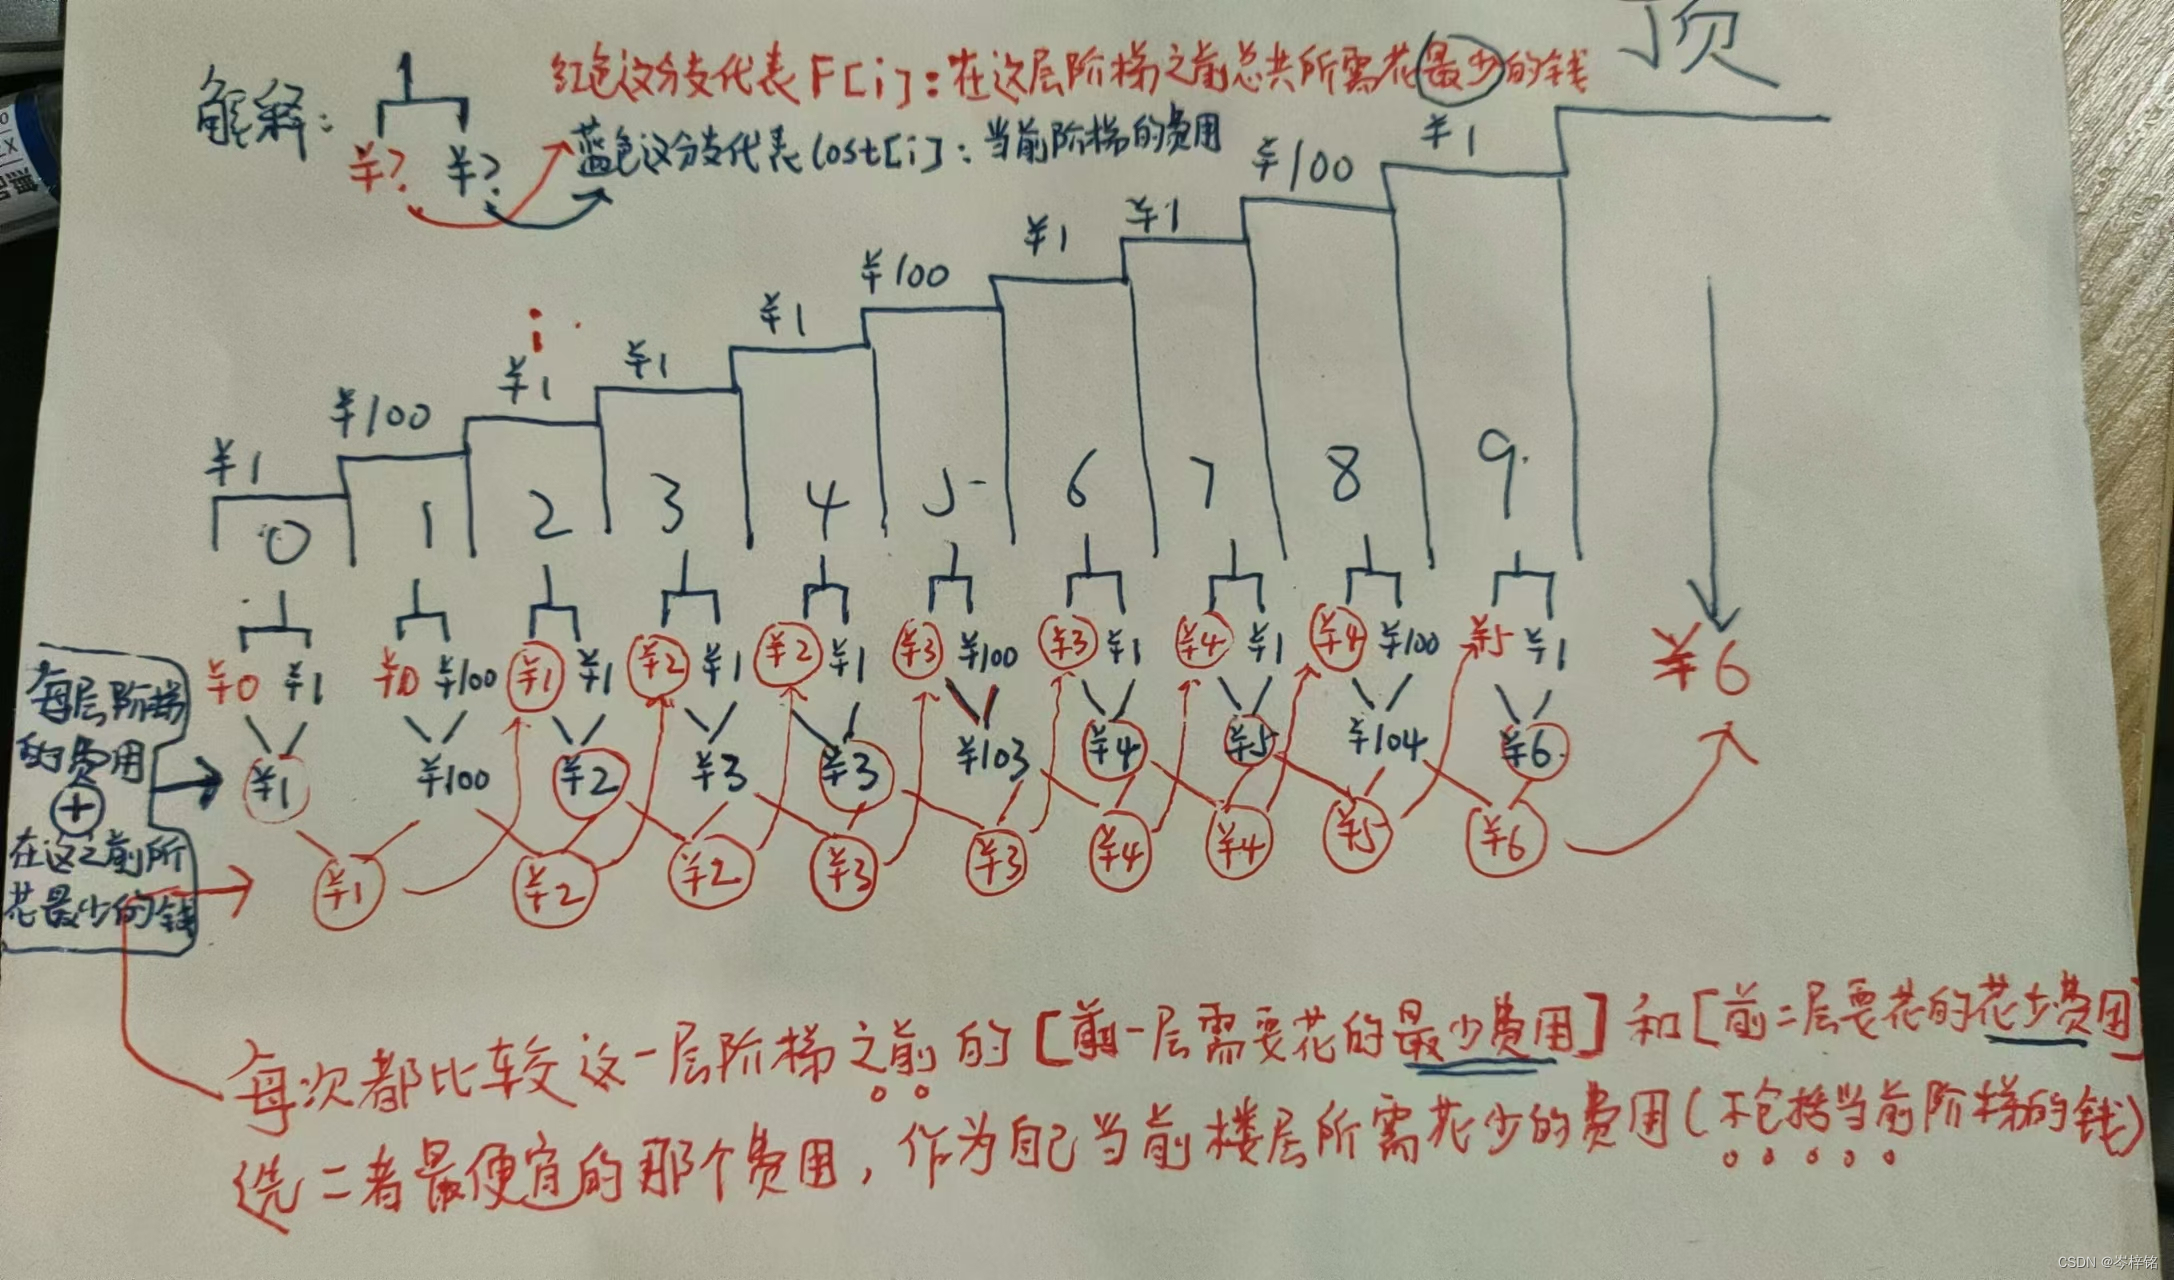 顶
解释:
红色这分支代表F[i]:在这层阶梯之前总共所需花最少的钱
蓝色这分支代表Cost[i]:当前阶梯的费用
¥? ¥?
¥1 ¥100 ¥1 ¥1 ¥1 ¥100 ¥1 ¥1 ¥100 ¥1
i
0 1 2 3 4 5 6 7 8 9
¥0 ¥1 ¥0 ¥100 ¥1 ¥1 ¥2 ¥1 ¥2 ¥1 ¥3 ¥100 ¥3 ¥1 ¥4 ¥1 ¥4 ¥100 ¥5 ¥1 ¥6
¥1 ¥100 ¥2 ¥3 ¥3 ¥103 ¥4 ¥5 ¥104 ¥6
¥1 ¥2 ¥2 ¥3 ¥3 ¥4 ¥4 ¥5 ¥6
每层阶梯
的费用
+
在这之前所
花最少的钱
每次都比较这一层阶梯之前的[前一层需要花的最少费用]和[前二层要花的花少费用]
选二者最便宜的那个费用,作为自己当前楼层所需花少的费用(不包括当前阶梯的钱)
CSDN @岑梓铭